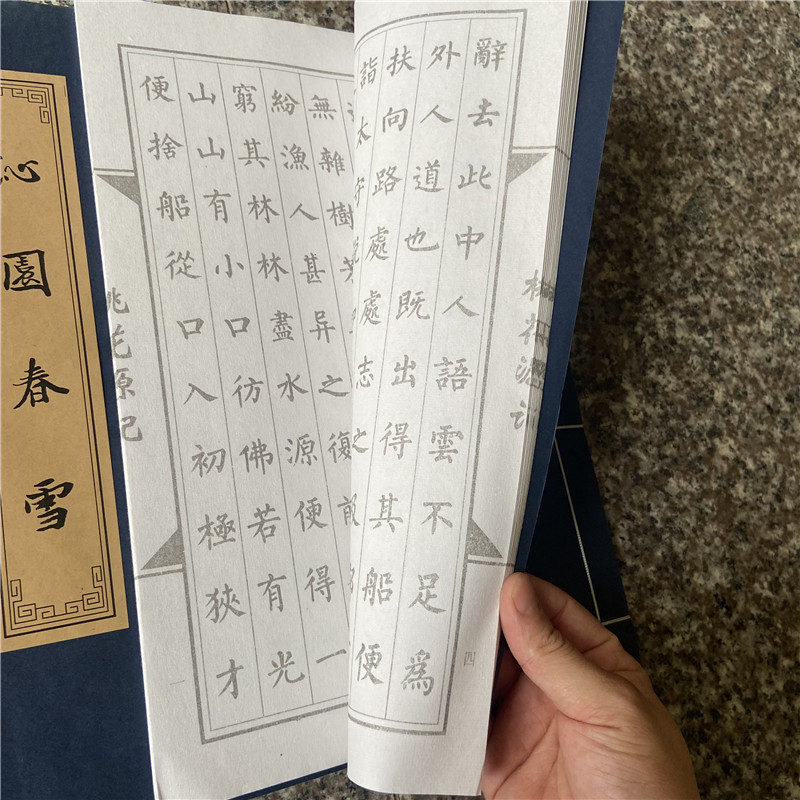 辭去此中人語雲不足爲
外人道也既出得其船便
扶向路處處志之
詣太守
桃花源記
四
無雜樹芳
紛漁人甚异之復前
窮其林林盡水源便得一
山山有小口彷佛若有光
便捨船從口入初極狹才
桃花源記
沁園春雪